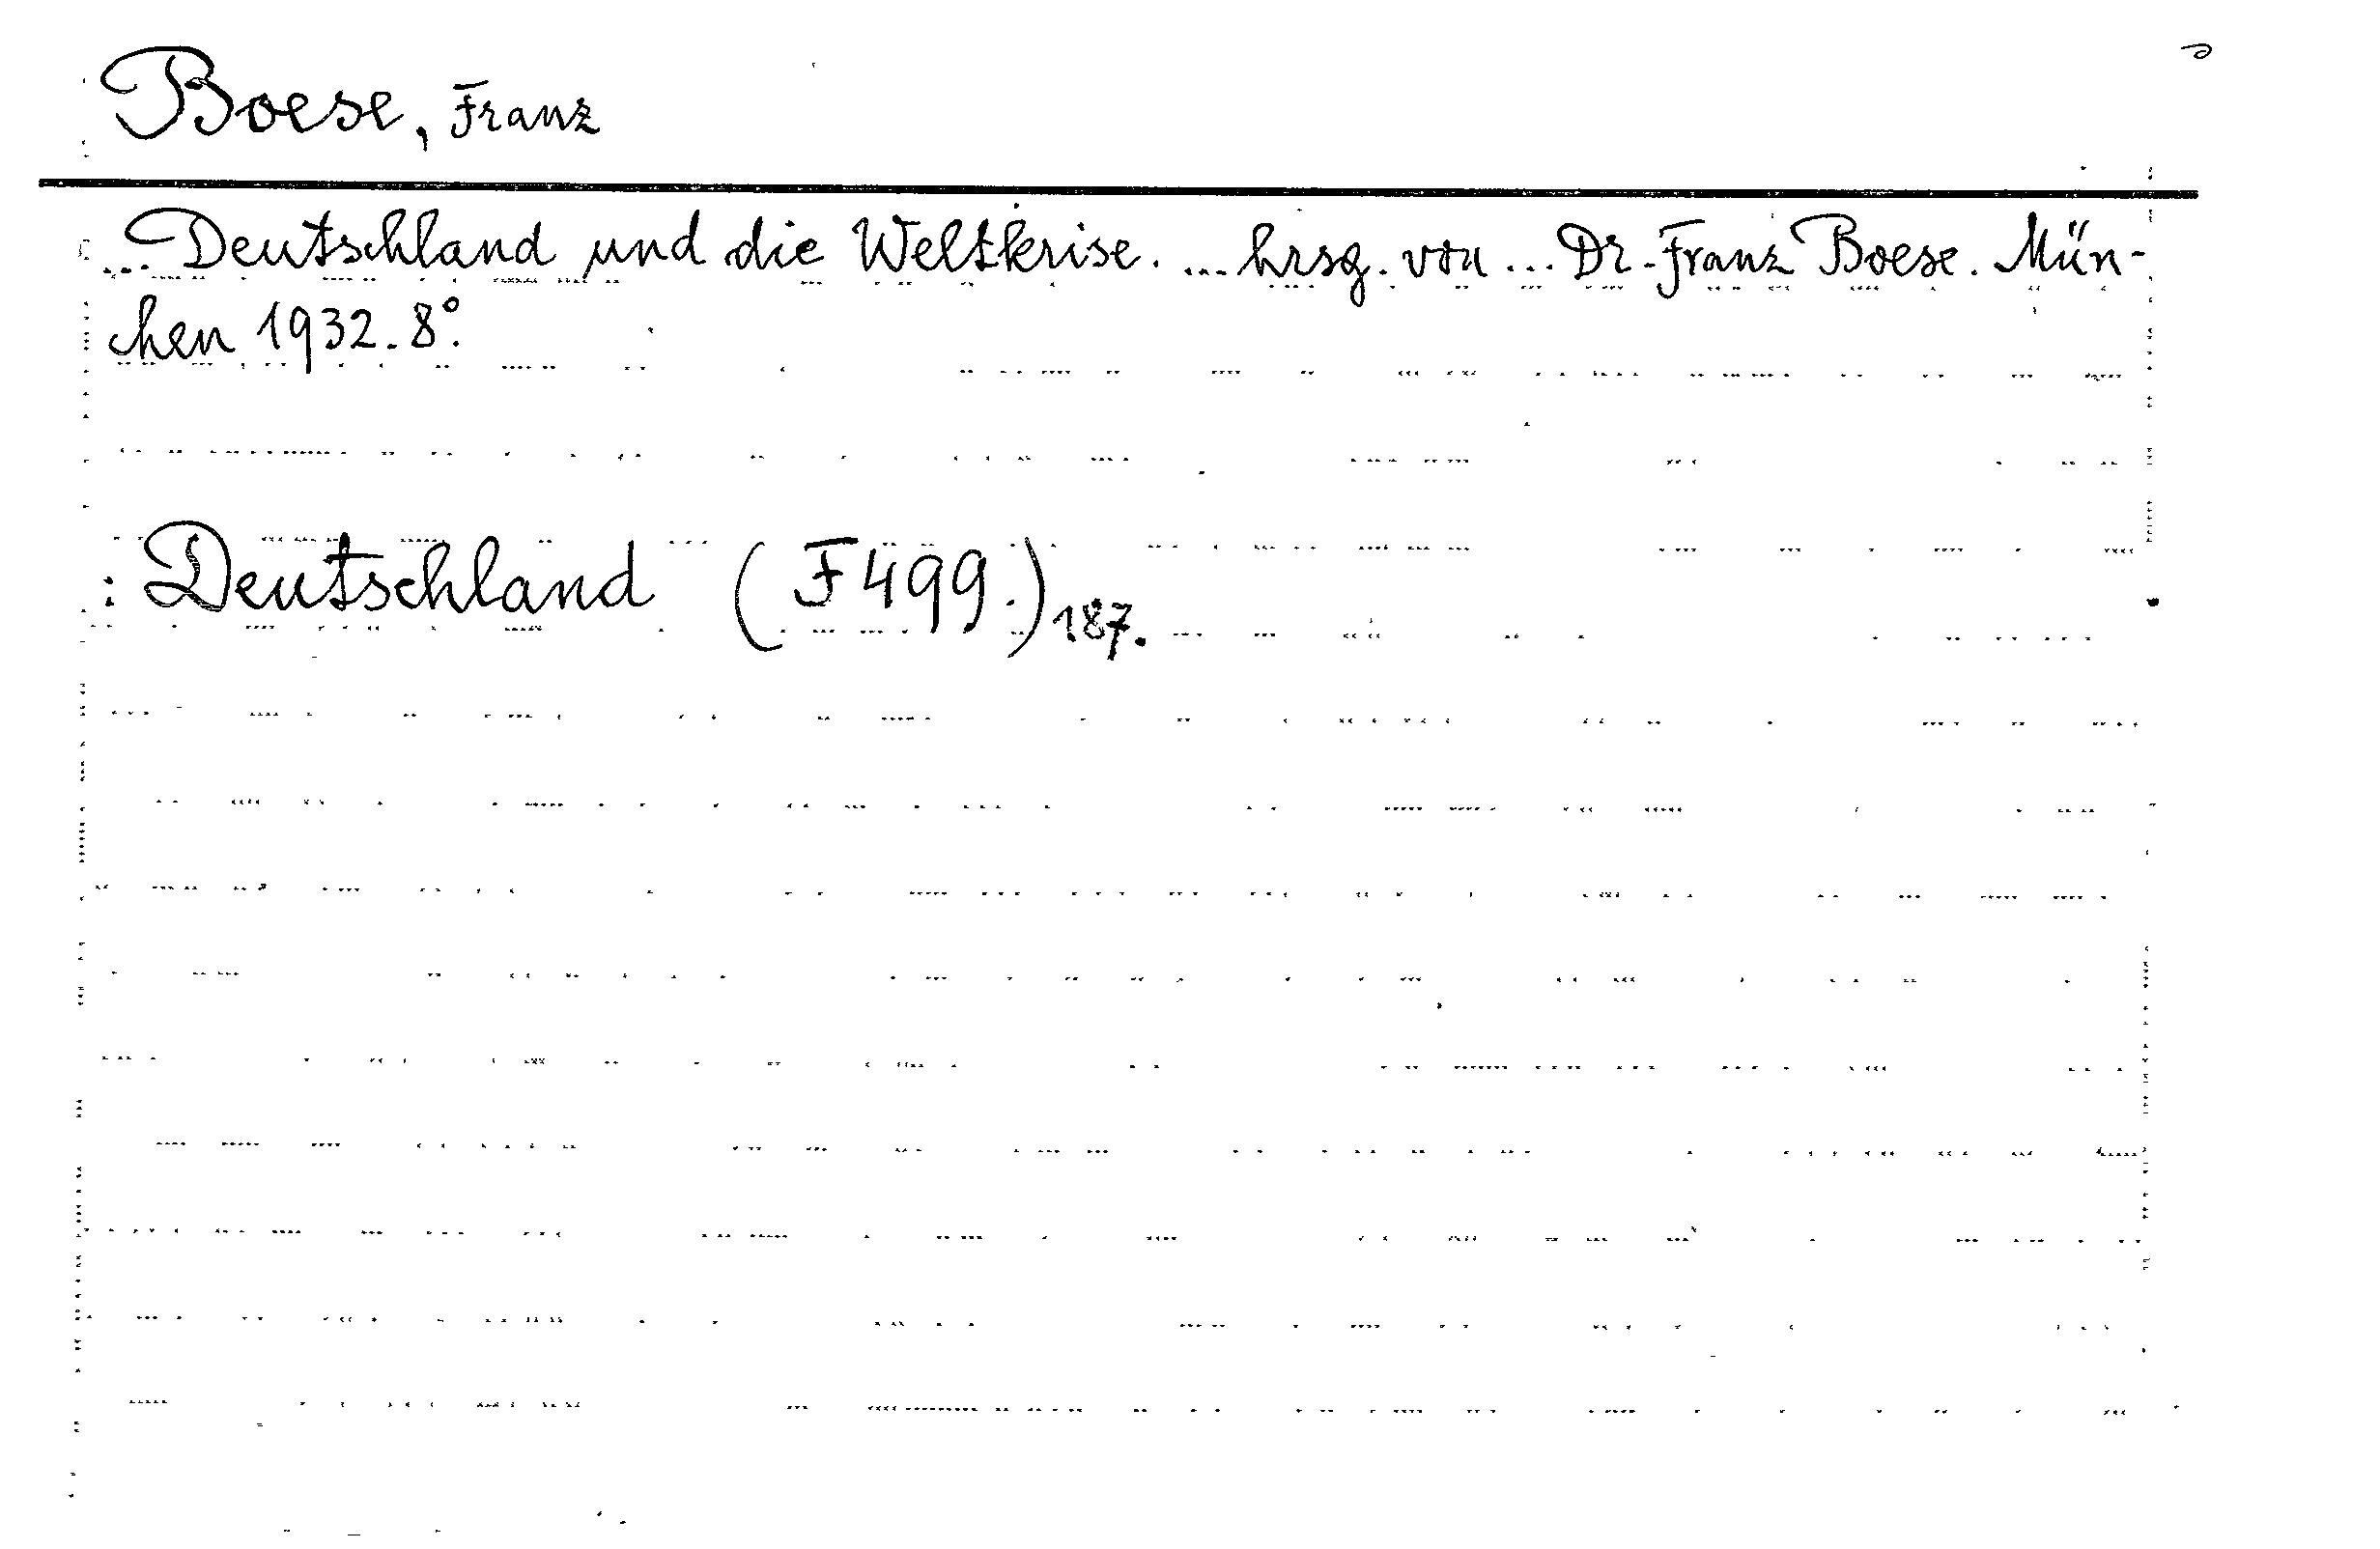 Boese, Franz
... Deutschland und die Weltkrise. ... hrsg. von ... Dr. Franz Boese. Mün-
chen 1932. 8°.
: Deutschland (F 499.) 187.